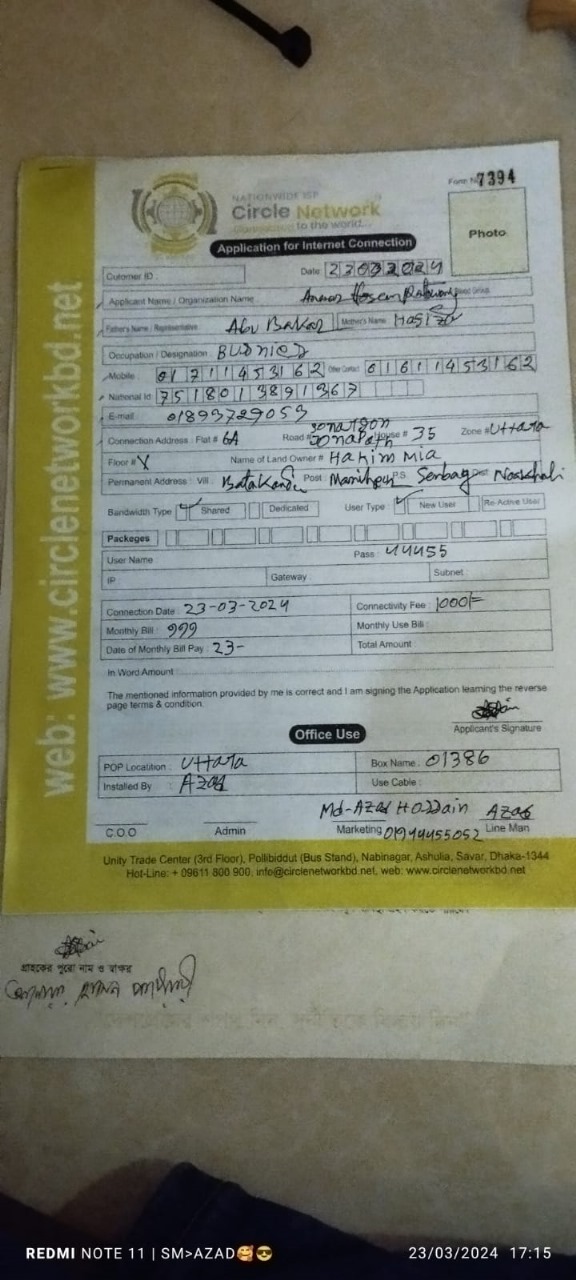 Form No 7394
NATIONWIDE ISP
Circle Network
Connecting to the world...
Photo
Application for Internet Connection
Cutomer ID :
Date : 23032024
Applicant Name / Organization Name :
Blood Group:
Father's Name / Representative Abu Bakar Mother's Name
Occupation / Designation :
Mobile : 01711453162 Other Contact : 01611453162
National Id : 7518013891367
E-mail : 01893729053
Connection Address : Flat # 6A Road # House # 35 Zone # Uttara
Floor # Name of Land Owner # Hakim Mia
Permanent Address : Vill : Post P.S Senbag
Bandwidth Type : Shared Dedicated User Type : New User Re-Active User
Packeges
User Name Pass : 44455
IP Gateway Subnet
Connection Date : 23-03-2024 Connectivity Fee 1000/=
Monthly Bill : 999 Monthly Use Bill :
Date of Monthly Bill Pay : 23- Total Amount :
In Word Amount :
The mentioned information provided by me is correct and I am signing the Application learning the reverse
page terms & condition.
Applicant's Signature
Office Use
POP Locatition : Uttara Box Name : 01386
Installed By : Azad Use Cable :
Md-Azad Hossain Azad
C.O.O Admin Marketing Line Man
Unity Trade Center (3rd Floor), Pollibiddut (Bus Stand), Nabinagar, Ashulia, Savar, Dhaka-1344
Hot-Line: + 09611 800 900, info@circlenetworkbd.net, web: www.circlenetworkbd.net
web: www.circlenetworkbd.net
গ্রাহকের পুরো নাম ও স্বাক্ষর
REDMI NOTE 11 | SM>AZAD🥰😎 23/03/2024 17:15